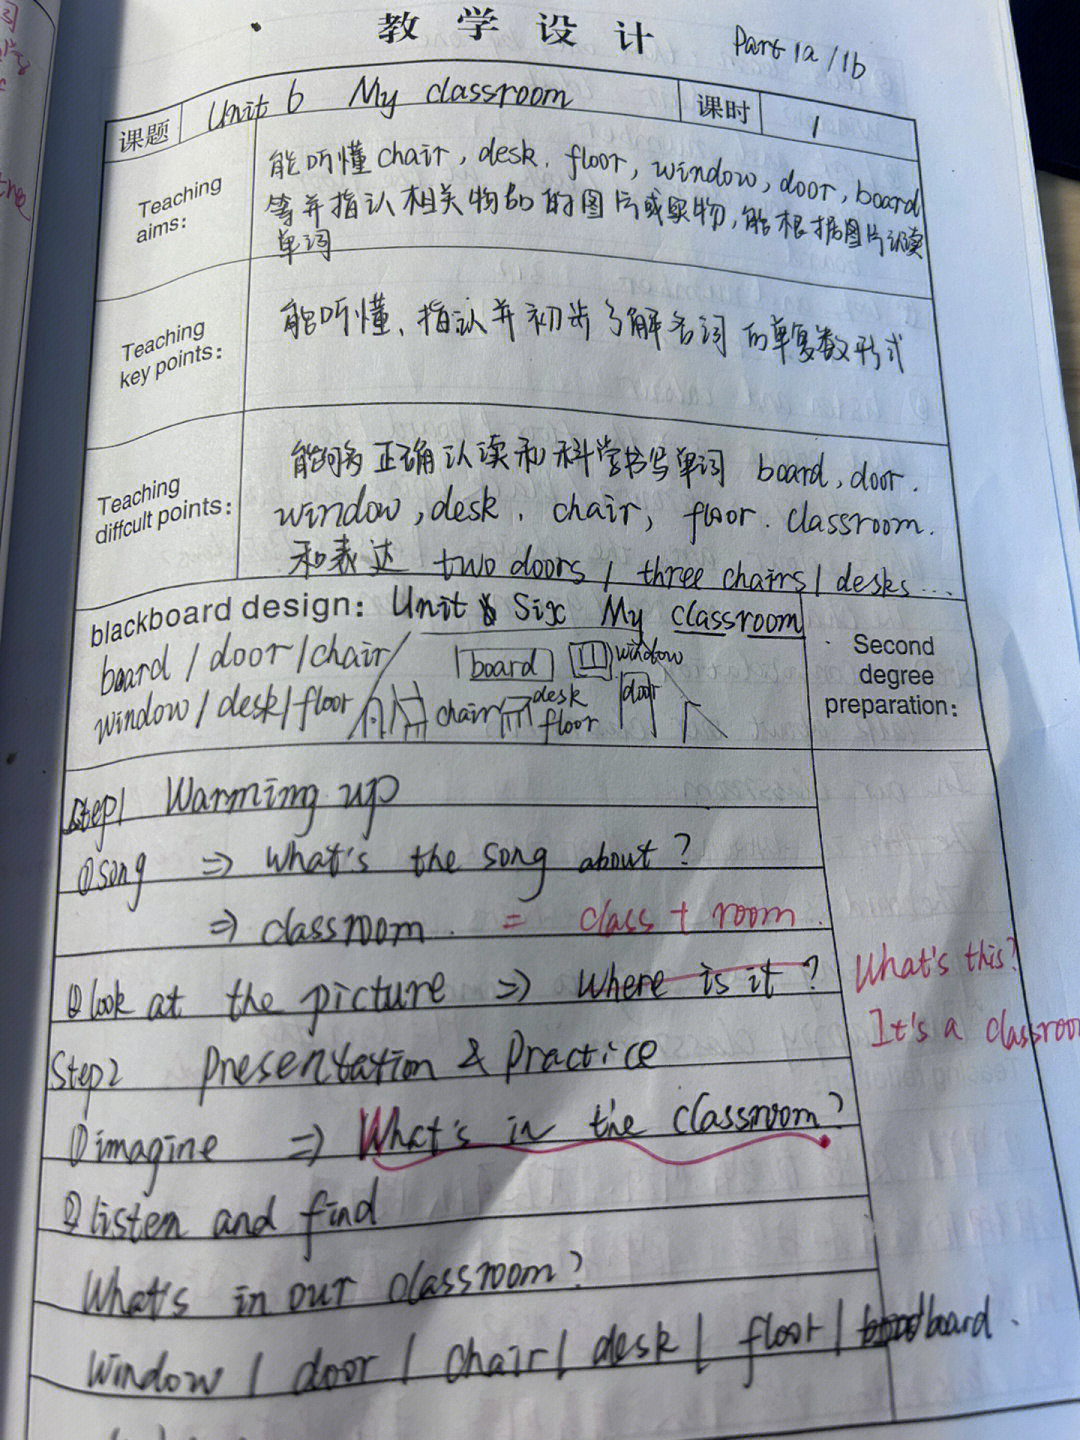 教学设计 Part 1a/1b
课题 Unit 6 My classroom 课时 1
Teaching aims:
能听懂chair, desk, floor, window, door, board
等并指认相关物品的图片或实物,能根据图片认读
单词
Teaching key points:
能听懂、指认并初步了解名词的单复数形式
Teaching diffcult points:
能够正确认读和科学书写单词 board, door.
window, desk. chair, floor. classroom.
和表达 two doors / three chairs / desks...
blackboard design: Unit Six My classroom
board / door / chair /
window / desk / floor
board window
chair desk door
floor
Second
degree
preparation:
Step1 Warming up
①song ⇒ What's the song about?
⇒ classroom. = class + room.
②look at the picture ⇒ Where is it?
What's this?
It's a classroo
Step2 Presentation & Practice
①imagine ⇒ What's in the classroom?
②listen and find
What's in our classroom?
window / door / chair / desk / floor / board.